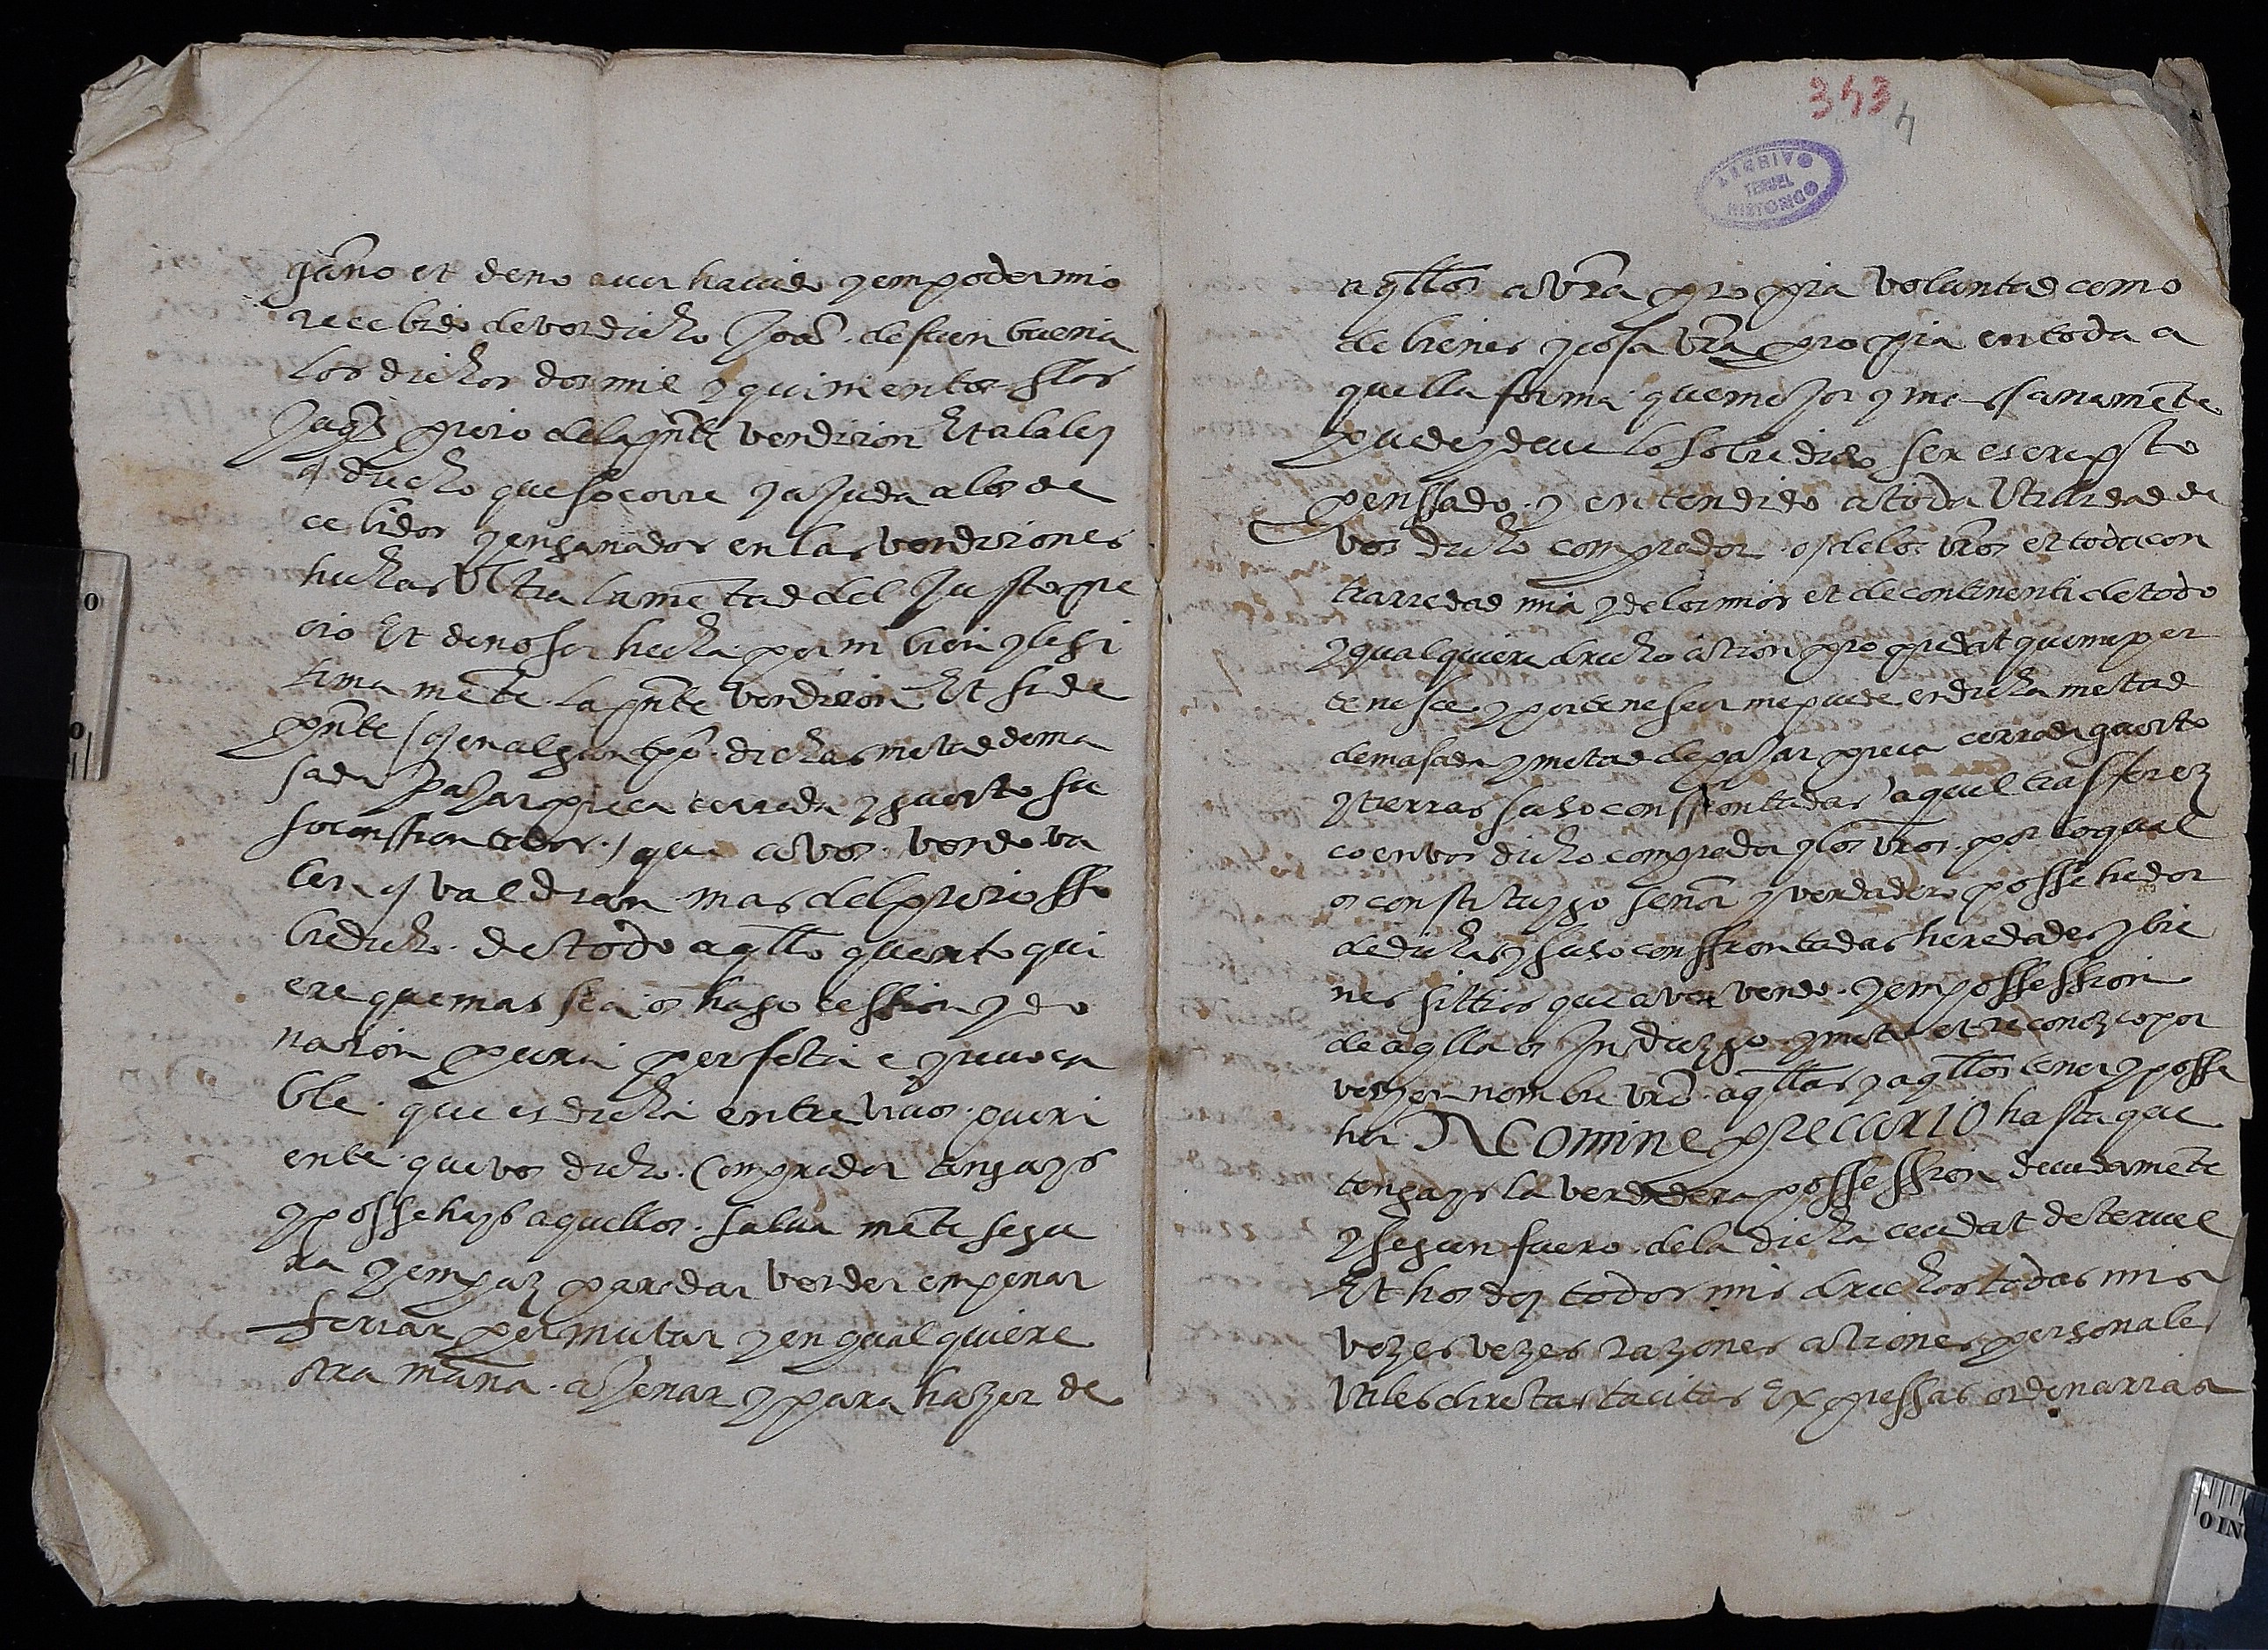 gãno et de no auer hauido y em poder mio
recebido de vos dicho Joã. de fuen buena
los dichos dos mil y quinientos sls
Jaqs precio dela pnte vendicion Et ala ley
o drecho que socorre y ajuda a los de
cebidos y enganados en las vendiciones
hechas Ultra la metad del Justo pre
cio Et de no ser hecha por mi bien y legi
tima mẽte la pnte vendicion Et si de
pnte o en algun tpo. dichas metad de ma
sada Pajar pieca cerrada y guerto su
so conffrontados. que a vos vendo va
len y valdran mas del precio sso
bre dicho. de todo aqllo quanto qui
ere que mas sea os hago cession y do
nacion pura perfecta e yreuoca
ble. que es dicha entre viuos. queri
ente. que vos dicho. Comprador tengays
y possehays aquellos. salua mẽte segu
ra y em paz para dar vender empenar
feriar permutar y en qual quiere
otra mana. ajenar y para hazer de
343
4
ARCHIVO
TERUEL
HISTORICO
aqllos a vra propia voluntad como
de bienes y cosa vra propia en toda a
quella forma que mejor y mas sanamẽte
puede y deue lo sobredicho ser escripto
penssado. y entendido a toda Utilidad de
vos dicho comprador. y delos vros et toda con
trariedad mia y delos mios et de continenti de todo
y qualquiere drecho action propriedat que me per
tenesce y pertenescer me puede en dicha metad
de masada y metad de pajar pieca cerrada guerto
y tierras suso conffrontadas aquel trassferez
co en vos dicho comprador y los vros. por lo qual
os constituyo senor y verdadero possehedor
de dichas y suso conffrontadas heredades y bie
nes sittios que a vos vendo. y em possession
de aqllas os Induzgo. y meto et reconozco por
vos y en nombre vrõ. aqllas y aqllos tener y posse
her. Nomine precario hasta que
tengays la verdadera possession deuidamẽte
y segun fuero. dela dicha ciudat de teruel
Et hos doy todos mis drechos todas mis
vozes vezes razones actiones personales
Utiles directas tacitas Expressas ordinarias